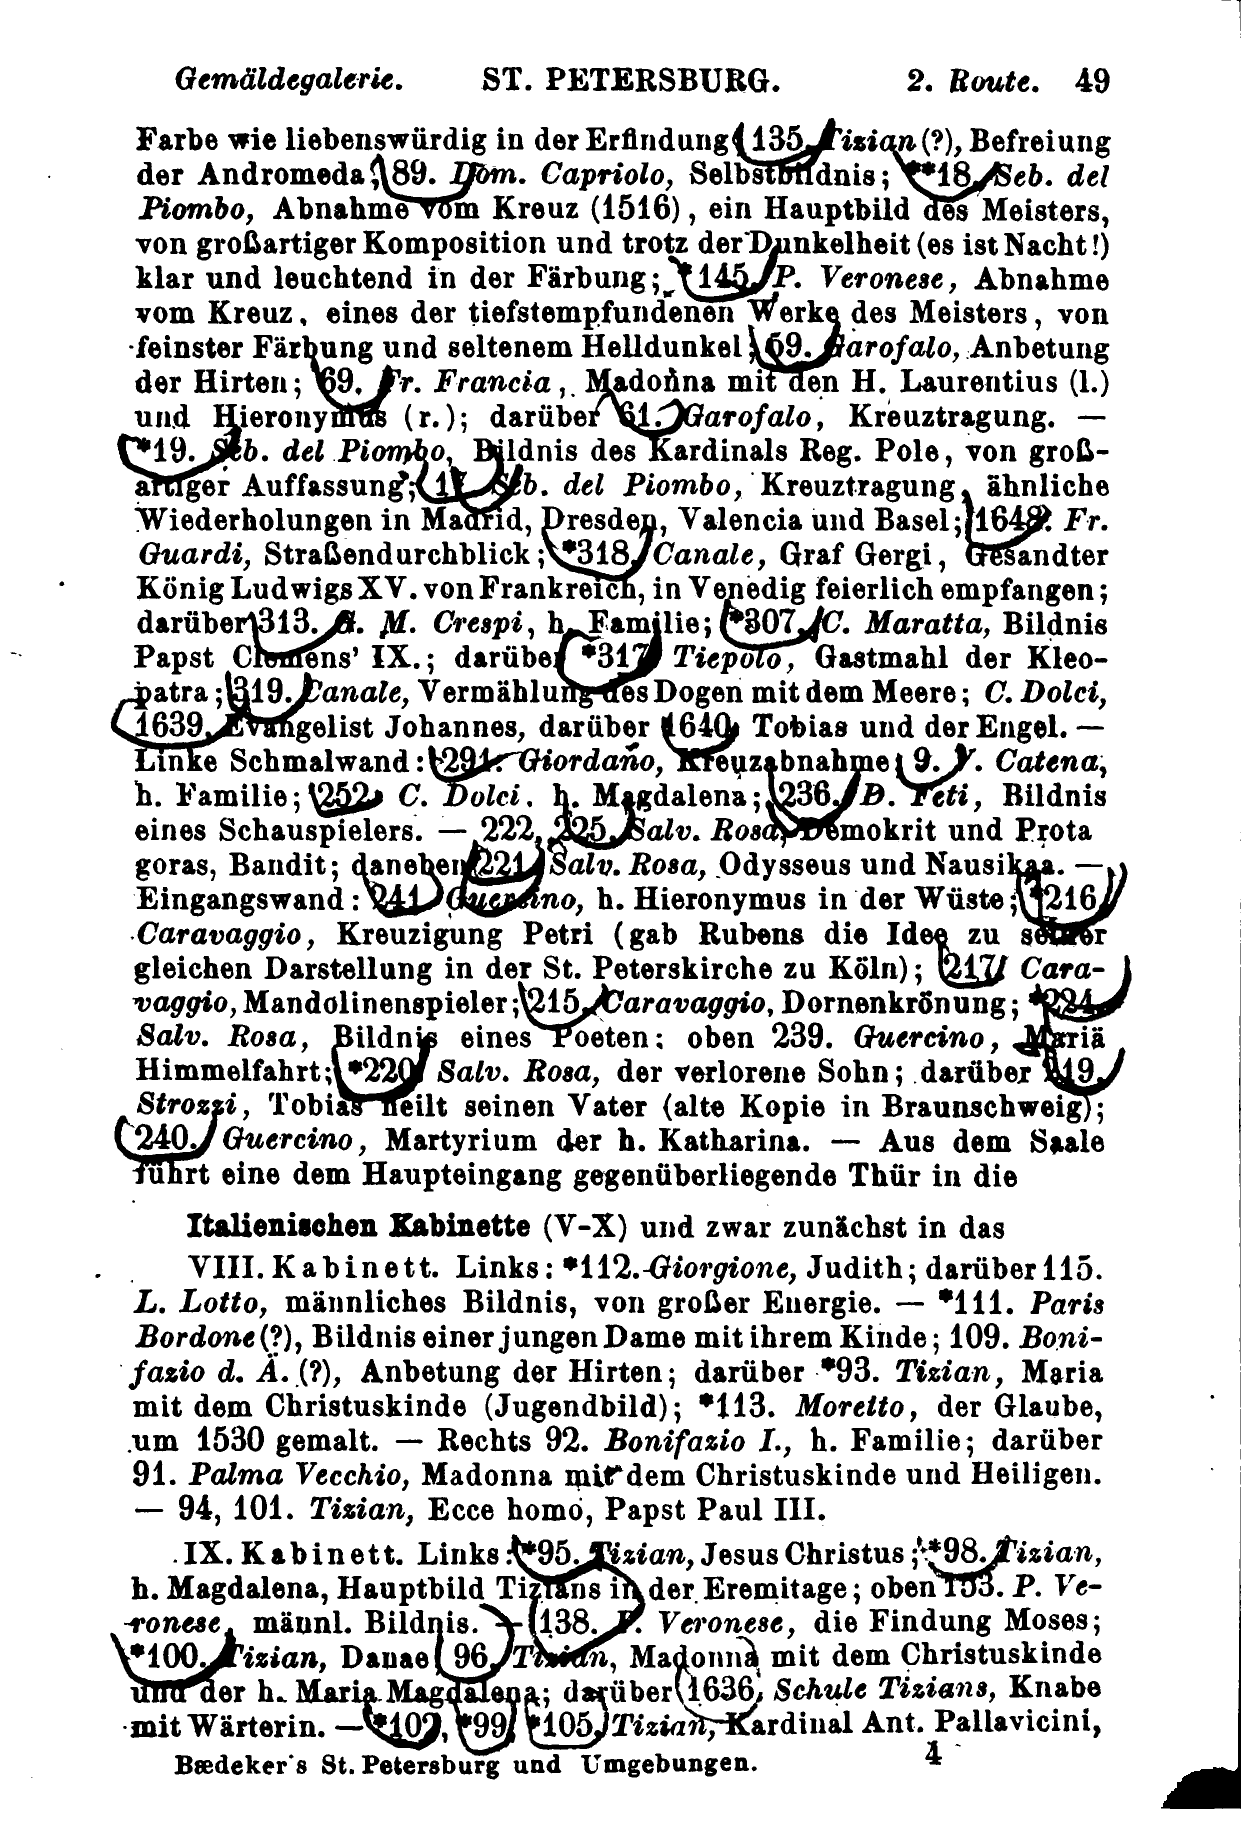 Gemäldegalerie. ST. PETERSBURG. 2. Route. 49
Farbe wie liebenswürdig in der Erfindung; 135. Tizian (?), Befreiung
der Andromeda; 89. Dom. Capriolo, Selbstbildnis; **18. Seb. del
Piombo, Abnahme vom Kreuz (1516), ein Hauptbild des Meisters,
von großartiger Komposition und trotz der Dunkelheit (es ist Nacht!)
klar und leuchtend in der Färbung; *145. P. Veronese, Abnahme
vom Kreuz, eines der tiefstempfundenen Werke des Meisters, von
feinster Färbung und seltenem Helldunkel; 59. Garofalo, Anbetung
der Hirten; 69. Fr. Francia, Madonna mit den H. Laurentius (l.)
und Hieronymus (r.); darüber 61. Garofalo, Kreuztragung. —
*19. Seb. del Piombo, Bildnis des Kardinals Reg. Pole, von groß-
artiger Auffassung; 17. Seb. del Piombo, Kreuztragung, ähnliche
Wiederholungen in Madrid, Dresden, Valencia und Basel; 1648. Fr.
Guardi, Straßendurchblick; *318. Canale, Graf Gergi, Gesandter
König Ludwigs XV. von Frankreich, in Venedig feierlich empfangen;
darüber 313. G. M. Crespi, h. Familie; *307. C. Maratta, Bildnis
Papst Clemens' IX.; darüber *317. Tiepolo, Gastmahl der Kleo-
patra; 319. Canale, Vermählung des Dogen mit dem Meere; C. Dolci,
1639. Evangelist Johannes, darüber 1640. Tobias und der Engel. —
Linke Schmalwand: 291. Giordano, Kreuzabnahme; 9. V. Catena,
h. Familie; 252. C. Dolci, h. Magdalena; 236. D. Feti, Bildnis
eines Schauspielers. — 222, 225. Salv. Rosa, Demokrit und Prota
goras, Bandit; daneben 221. Salv. Rosa, Odysseus und Nausikaa. —
Eingangswand: 241. Guercino, h. Hieronymus in der Wüste; *216.
Caravaggio, Kreuzigung Petri (gab Rubens die Idee zu seiner
gleichen Darstellung in der St. Peterskirche zu Köln); 217. Cara-
vaggio, Mandolinenspieler; 215. Caravaggio, Dornenkrönung; *224.
Salv. Rosa, Bildnis eines Poeten; oben 239. Guercino, Mariä
Himmelfahrt; *220. Salv. Rosa, der verlorene Sohn; darüber 219.
Strozzi, Tobias heilt seinen Vater (alte Kopie in Braunschweig);
240. Guercino, Martyrium der h. Katharina. — Aus dem Saale
führt eine dem Haupteingang gegenüberliegende Thür in die
Italienischen Kabinette (V-X) und zwar zunächst in das
VIII. Kabinett. Links: *112. Giorgione, Judith; darüber 115.
L. Lotto, männliches Bildnis, von großer Energie. — *111. Paris
Bordone (?), Bildnis einer jungen Dame mit ihrem Kinde; 109. Boni-
fazio d. Ä. (?), Anbetung der Hirten; darüber *93. Tizian, Maria
mit dem Christuskinde (Jugendbild); *113. Moretto, der Glaube,
um 1530 gemalt. — Rechts 92. Bonifazio I., h. Familie; darüber
91. Palma Vecchio, Madonna mit dem Christuskinde und Heiligen.
— 94, 101. Tizian, Ecce homo, Papst Paul III.
IX. Kabinett. Links: *95. Tizian, Jesus Christus; **98. Tizian,
h. Magdalena, Hauptbild Tizians in der Eremitage; oben 153. P. Ve-
ronese, männl. Bildnis. — 138. P. Veronese, die Findung Moses;
*100. Tizian, Danae; 96. Tizian, Madonna mit dem Christuskinde
und der h. Maria Magdalena; darüber 1636. Schule Tizians, Knabe
mit Wärterin. — *102, *99, *105. Tizian, Kardinal Ant. Pallavicini,
Bædeker's St. Petersburg und Umgebungen. 4